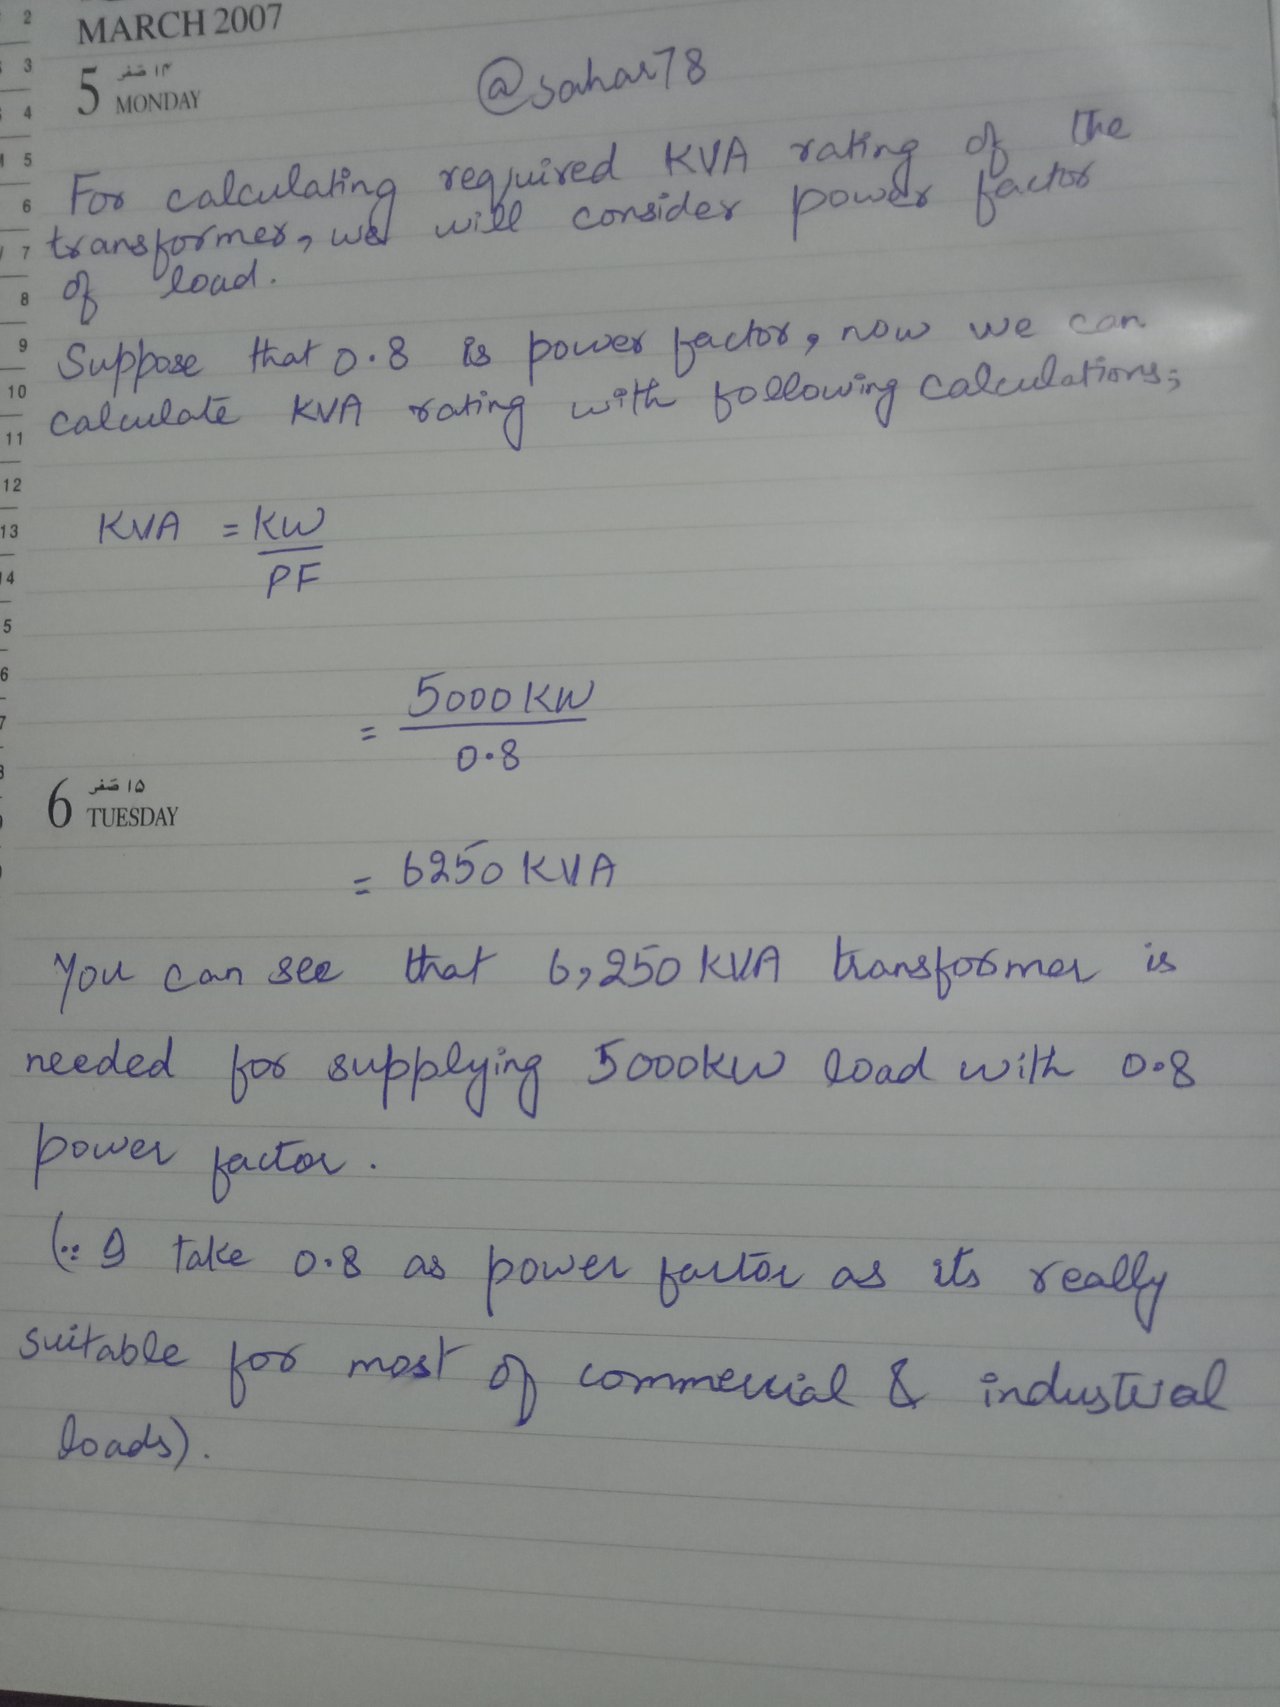 2
MARCH 2007
3
5 ۱۴ صفر
MONDAY
@sahar78
4
5
For calculating required KVA rating of the
6
transformer, we will consider power factor
7
of load.
8
9
Suppose that 0.8 is power factor, now we can
10
calculate KVA rating with following calculations;
11
12
13
KVA = KW
PF
14
5
6
= 5000 KW
0.8
7
6 ۱۵ صفر
TUESDAY
= 6250 KVA
You can see that 6,250 KVA transformer is
needed for supplying 5000kw load with 0.8
power factor.
(∵ I take 0.8 as power factor as its really
suitable for most of commercial & industrial
loads).